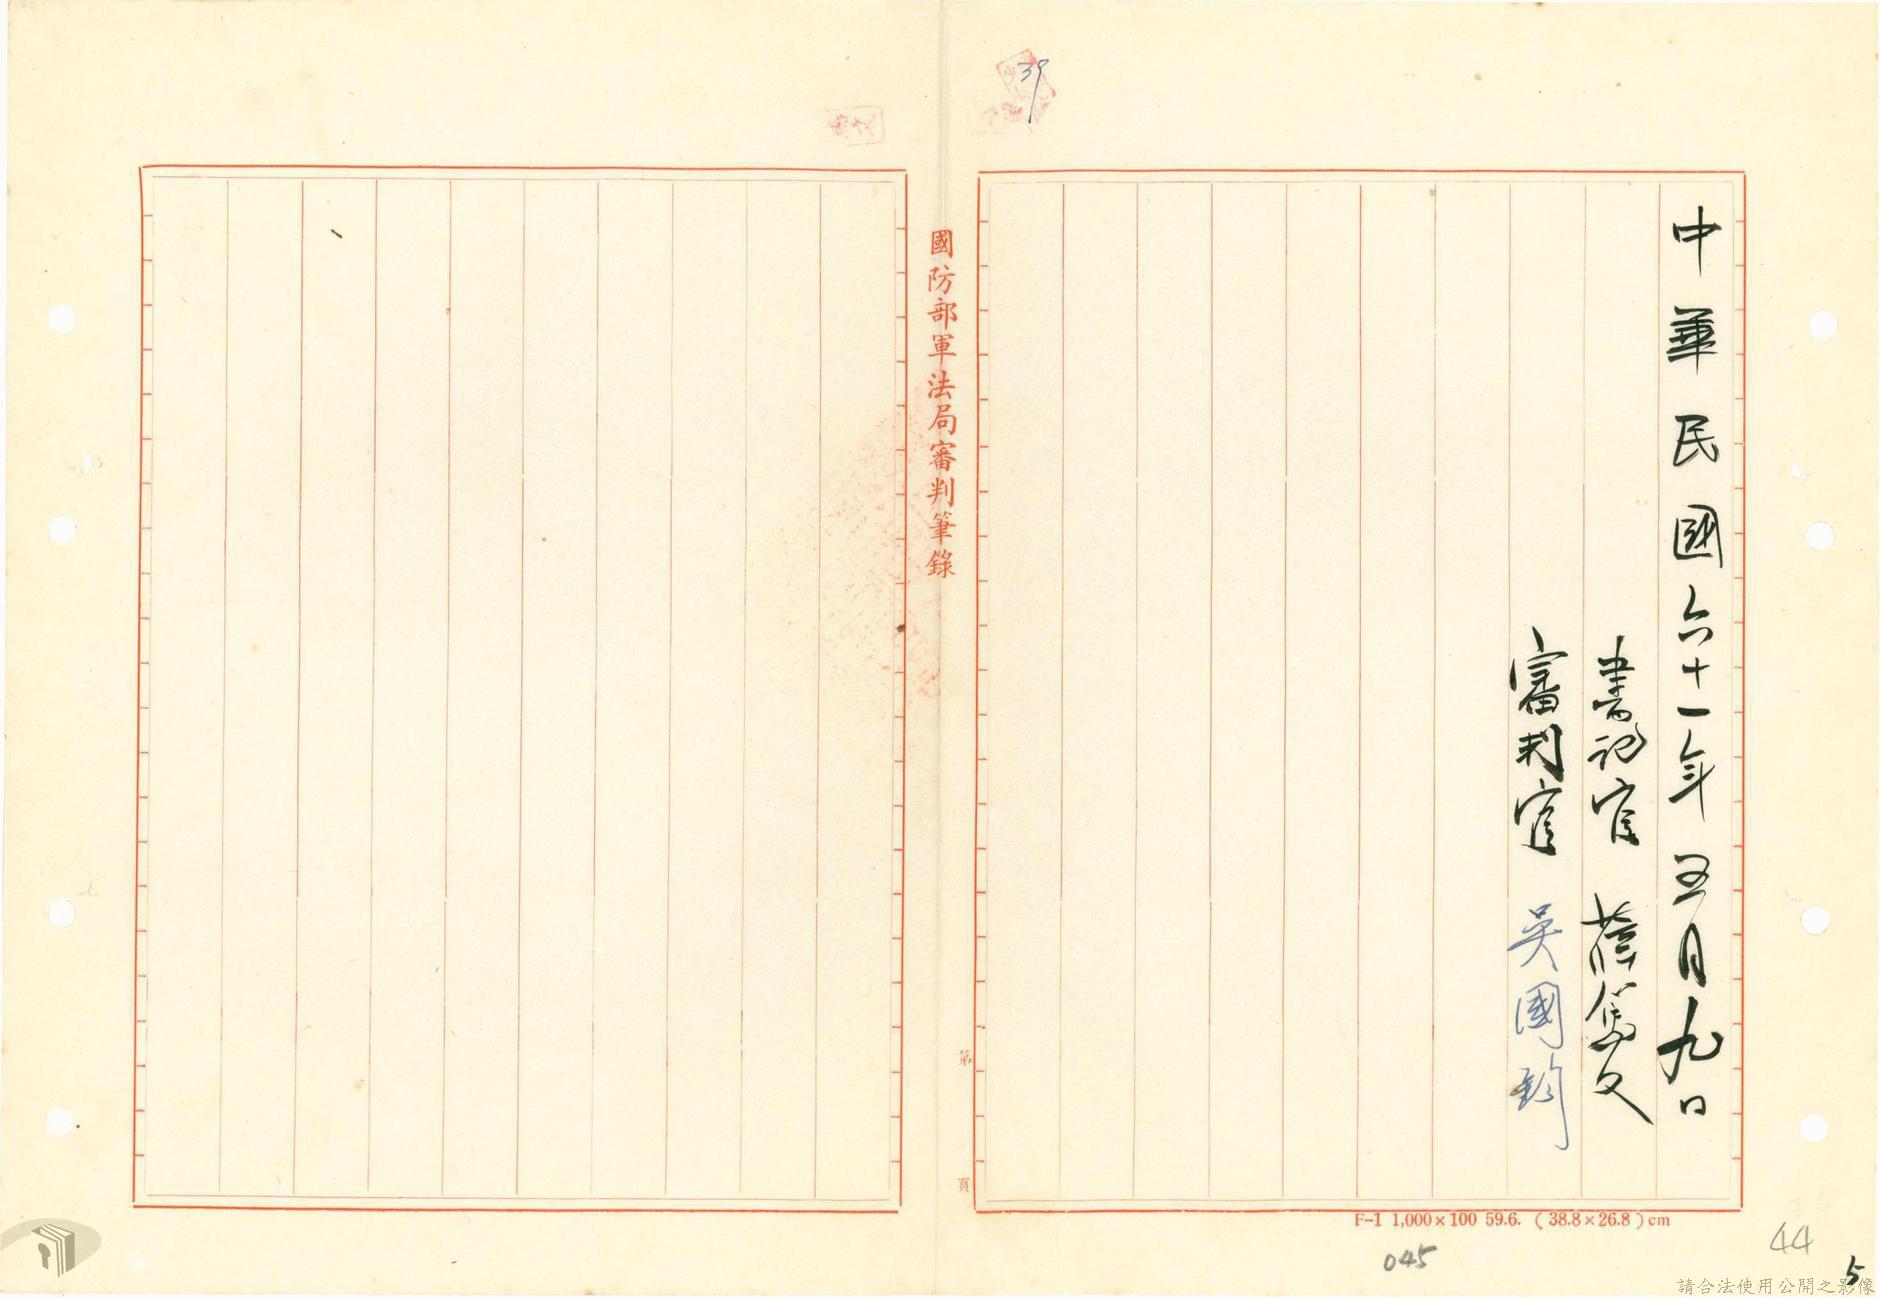 中華民國六十一年五月九日
書記官
審判官 吳國鈞
39
國防部軍法局審判筆錄
第 頁
F-1 1,000×100 59.6. (38.8×26.8)cm
045
44
5
請合法使用公開之影像